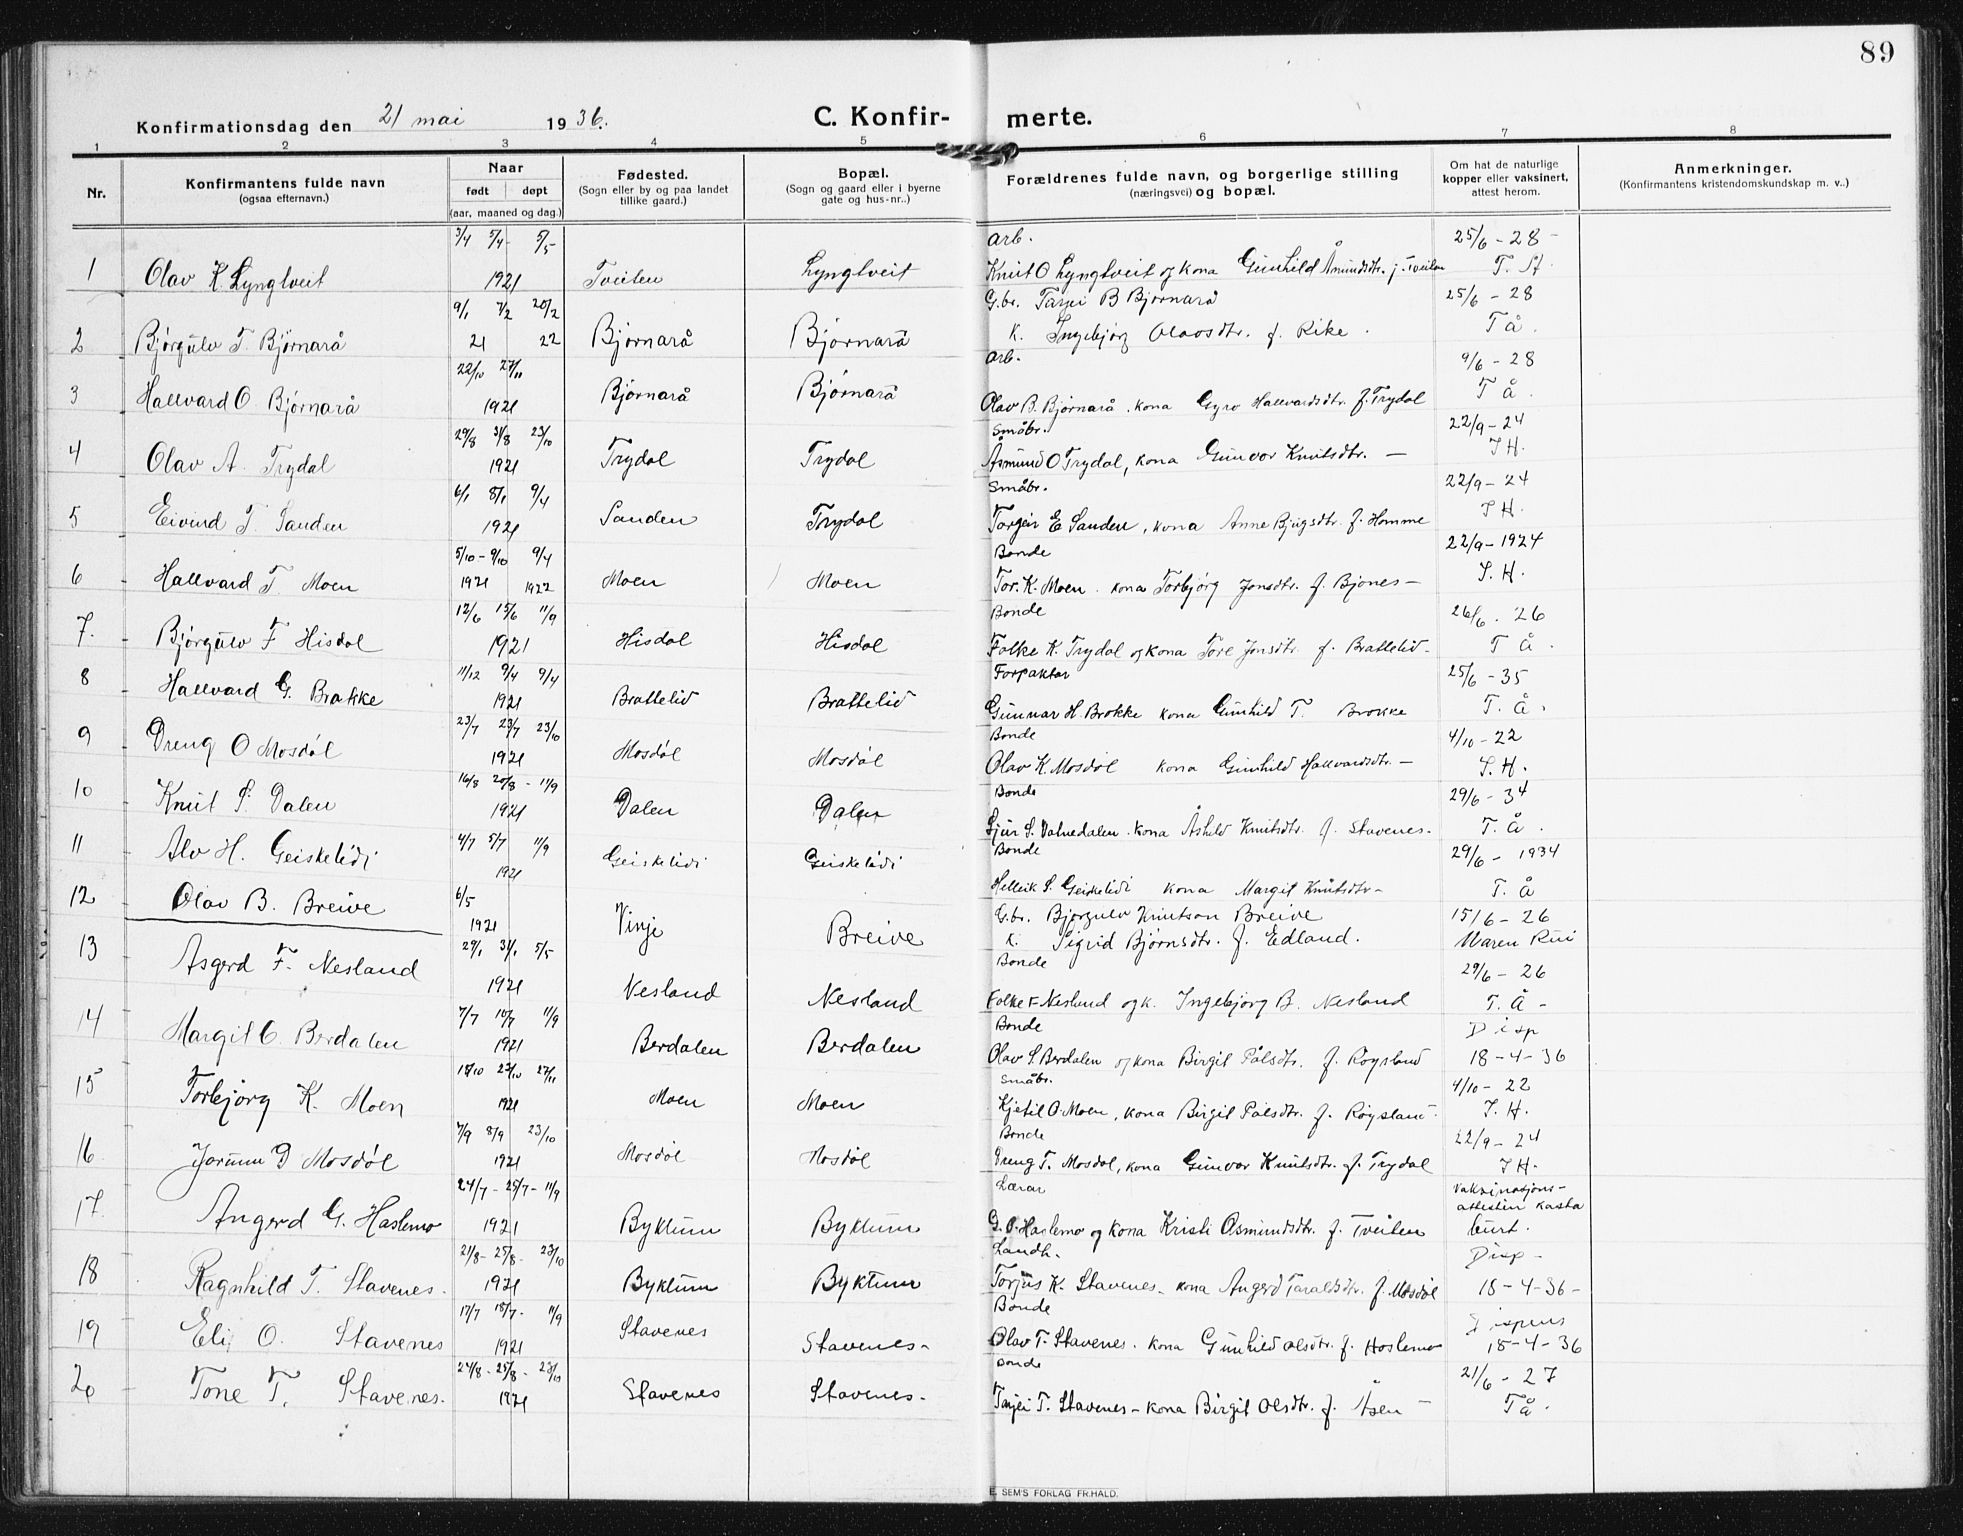 89
Konfirmationsdag den 21 mai 1936.
C. Konfir- merte.
1 2 3 4 5 6 7 8
Nr.
Konfirmantens fulde navn
(ogsaa efternavn.)
Naar
født døpt
(aar, maaned og dag.)
Fødested.
(Sogn eller by og paa landet
tillike gaard.)
Bopæl.
(Sogn og gaard eller i byerne
gate og hus-nr..)
Forældrenes fulde navn, og borgerlige stilling
(næringsvei) og bopæl.
Om hat de naturlige
kopper eller vaksinert,
attest herom.
Anmerkninger.
(Konfirmantens kristendomskundskap m. v..)
3/4 5/4 - 5/5 arb. 25/6 - 28 -
1 Olav K. Lyngtveit 1921 Tveiten Lyngtveit Knut O Lyngtveit og kona Gunhild Åmundsdtr. f. Tveiten T. St.
9/1 7/2 20/2 G.br. Tarjei B Bjørnarå 25/6 - 28
2 Bjørgulv T. Bjørnarå 21 22 Bjørnarå Bjørnarå K. Ingebjørg Olavsdtr. f. Rike. T Å.
22/10 27/11 arb. 9/6 - 28
3 Hallvard O Bjørnarå 1921 Bjørnarå Bjørnarå Olav B. Bjørnarå. kona Gyro Hallvardsdtr. f. Trydal T Å.
29/8 31/8 23/10 Småbr. 22/9 - 24
4 Olav A. Trydal 1921 Trydal Trydal Åsmund O Trydal, kona Gunvor Knutsdtr. - I H.
6/1 8/1 9/4 Småbr. 22/9 - 24
5 Eivind T. Sanden 1921 Sanden Trydal Torgeir E Sanden, kona Anne Bjugsdtr. f. Homme I H.
5/10 - 9/10 9/4 Bonde 22/9 - 1924
6 Hallvard T. Moen 1921 1922 Moen Moen Tor. K. Moen. kona Torbjørg Jonsdtr. f. Bjones - I. H.
12/6 15/6 11/9 Bonde 26/6. 26
7. Bjørgulv F Hisdal 1921 Hisdal Hisdal Folke K. Trydal og kona Tore Jonsdtr. f. Brattelid - T Å.
11/12 9/4 9/4 Forpaktar 25/6 - 35
8 Hallvard G. Brokke 1921 Brattelid Brattelid Gunnar H. Brokke kona Gunhild T. Brokke T. Å.
23/7 23/7 23/10 Bonde 4/10 - 22
9 Dreng O Mosdøl 1921 Mosdøl Mosdøl Olav K. Mosdøl kona Gunhild Hallvardsdtr. - I. H.
16/8 20/8 - 11/9 Bonde 29/6 - 34
10 Knut S. Dalen 1921 Dalen Dalen Sjur S. Dalen kona Åshild Knutsdtr. f. Stavenes. T. Å.
4/7 5/7 11/9 Bonde 29/6 - 1934
11 Alv H. Geiskelidi 1921 Geiskelidi Geiskelidi Helleik S. Geiskelidi kona Margit Knutsdtr - T. Å
6/5 G.br. Bjørgulv Knutson Breive 15/6 - 26
12 Olav B. Breive 1921 Vinje Breive K. Sigrid Bjørnsdtr. f. Edland. Maren Rui
29/1 31/1 5/5 Bonde 29/6 - 26
13 Asgerd F. Nesland 1921 Nesland Nesland Folke F Nesland og k. Ingebjørg B. Nesland T. Å -
7/7 10/7 11/9 Bonde Disp
14 Margit O. Berdalen 1921 Berdalen Berdalen Olav S. Berdalen og kona Birgit Pålsdtr. f. Røysland 18-4-36
18/10 23/10 27/11 Småbr. 4/10 - 22
15 Torbjørg K. Moen 1921 Moen Moen Kjetil O. Moen, kona Birgit Pålsdtr. f. Røysland. I. H.
7/9 8/9 23/10 Bonde 22/9 - 24
16 Jorunn D Mosdøl 1921 Mosdøl Mosdøl Dreng T. Mosdøl, kona Gunvor Knutsdtr. f. Trydal I H.
24/7 - 25/7 - 11/9 Lærar Vaksinasjons-
attestin kasta
17. Angerd G. Haslemo 1921 Byktum Byktum G. O. Haslemo og kona Kristi Osmundsdtr. f. Tveiten burt.
21/8 - 25/8 - 23/10 Landh. Disp -
18 Ragnhild T. Stavenes. 1921 Byktum Byktum Torjus K. Stavenes - kona Angerd Taraldsdtr. f. Mosdøl 18-4-36 -
17/7 18/7 - 11/9 Bonde Dispens
19 Eli O. Stavenes 1921 Stavenes Stavenes - Olav T. Stavenes. kona Gunhild Olsdtr. f. Hoslemo 18-4-36
24/8 - 25/8 - 23/10 Bonde 21/6 - 27
20 Tone T. Stavenes. 1921 Stavenes Stavenes - Tarjei T. Stavenes - kona Birgit Olsdtr. f. Åsen - T Å.
E. SEM'S FORLAG FR.HALD.